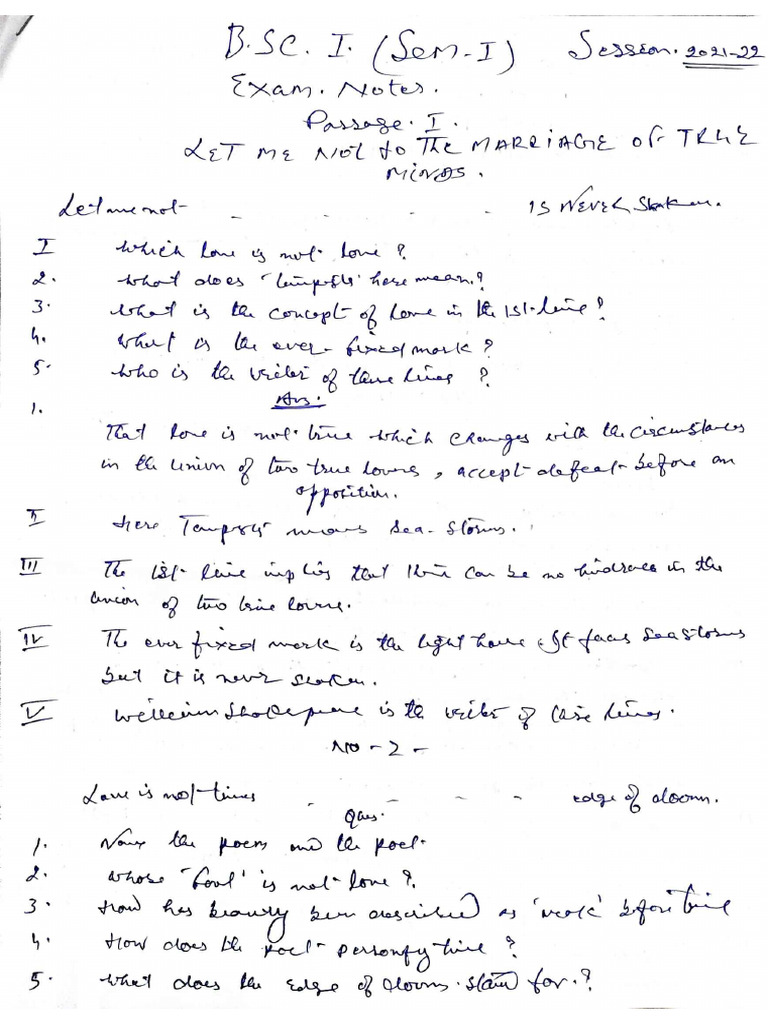 B.SC. I. (Sem-I) Session. 2021-22
Exam. Notes.
Passage. I.
LET ME NOT to THE MARRIAGE OF TRUE
MINDS.
Let me not - - - - is NEVER Shaken.
I which love is not love?
2. what does 'tempests' here mean?
3. what is the concept of love in the 1st line?
4. what is the ever-fixed mark?
5. who is the writer of these lines?
Ans.
1.
That love is not true which changes with the circumstances
in the union of two true lovers, accept defeat before an
opposition.
II here Tempests means sea-storms.
III The 1st line implies that there can be no hindrance in the
union of two true lovers.
IV The ever fixed mark is the light house. It faces sea storms
but it is never shaken.
V William Shakespeare is the writer of these lines.
NO - 2 -
Love is not times - - - - edge of doom.
Ques.
1. Name the poem and the poet.
2. whose 'fool' is not love?
3. How has beauty been described as 'weak' before time
4. How does the poet personify time?
5. what does the edge of doom stand for?